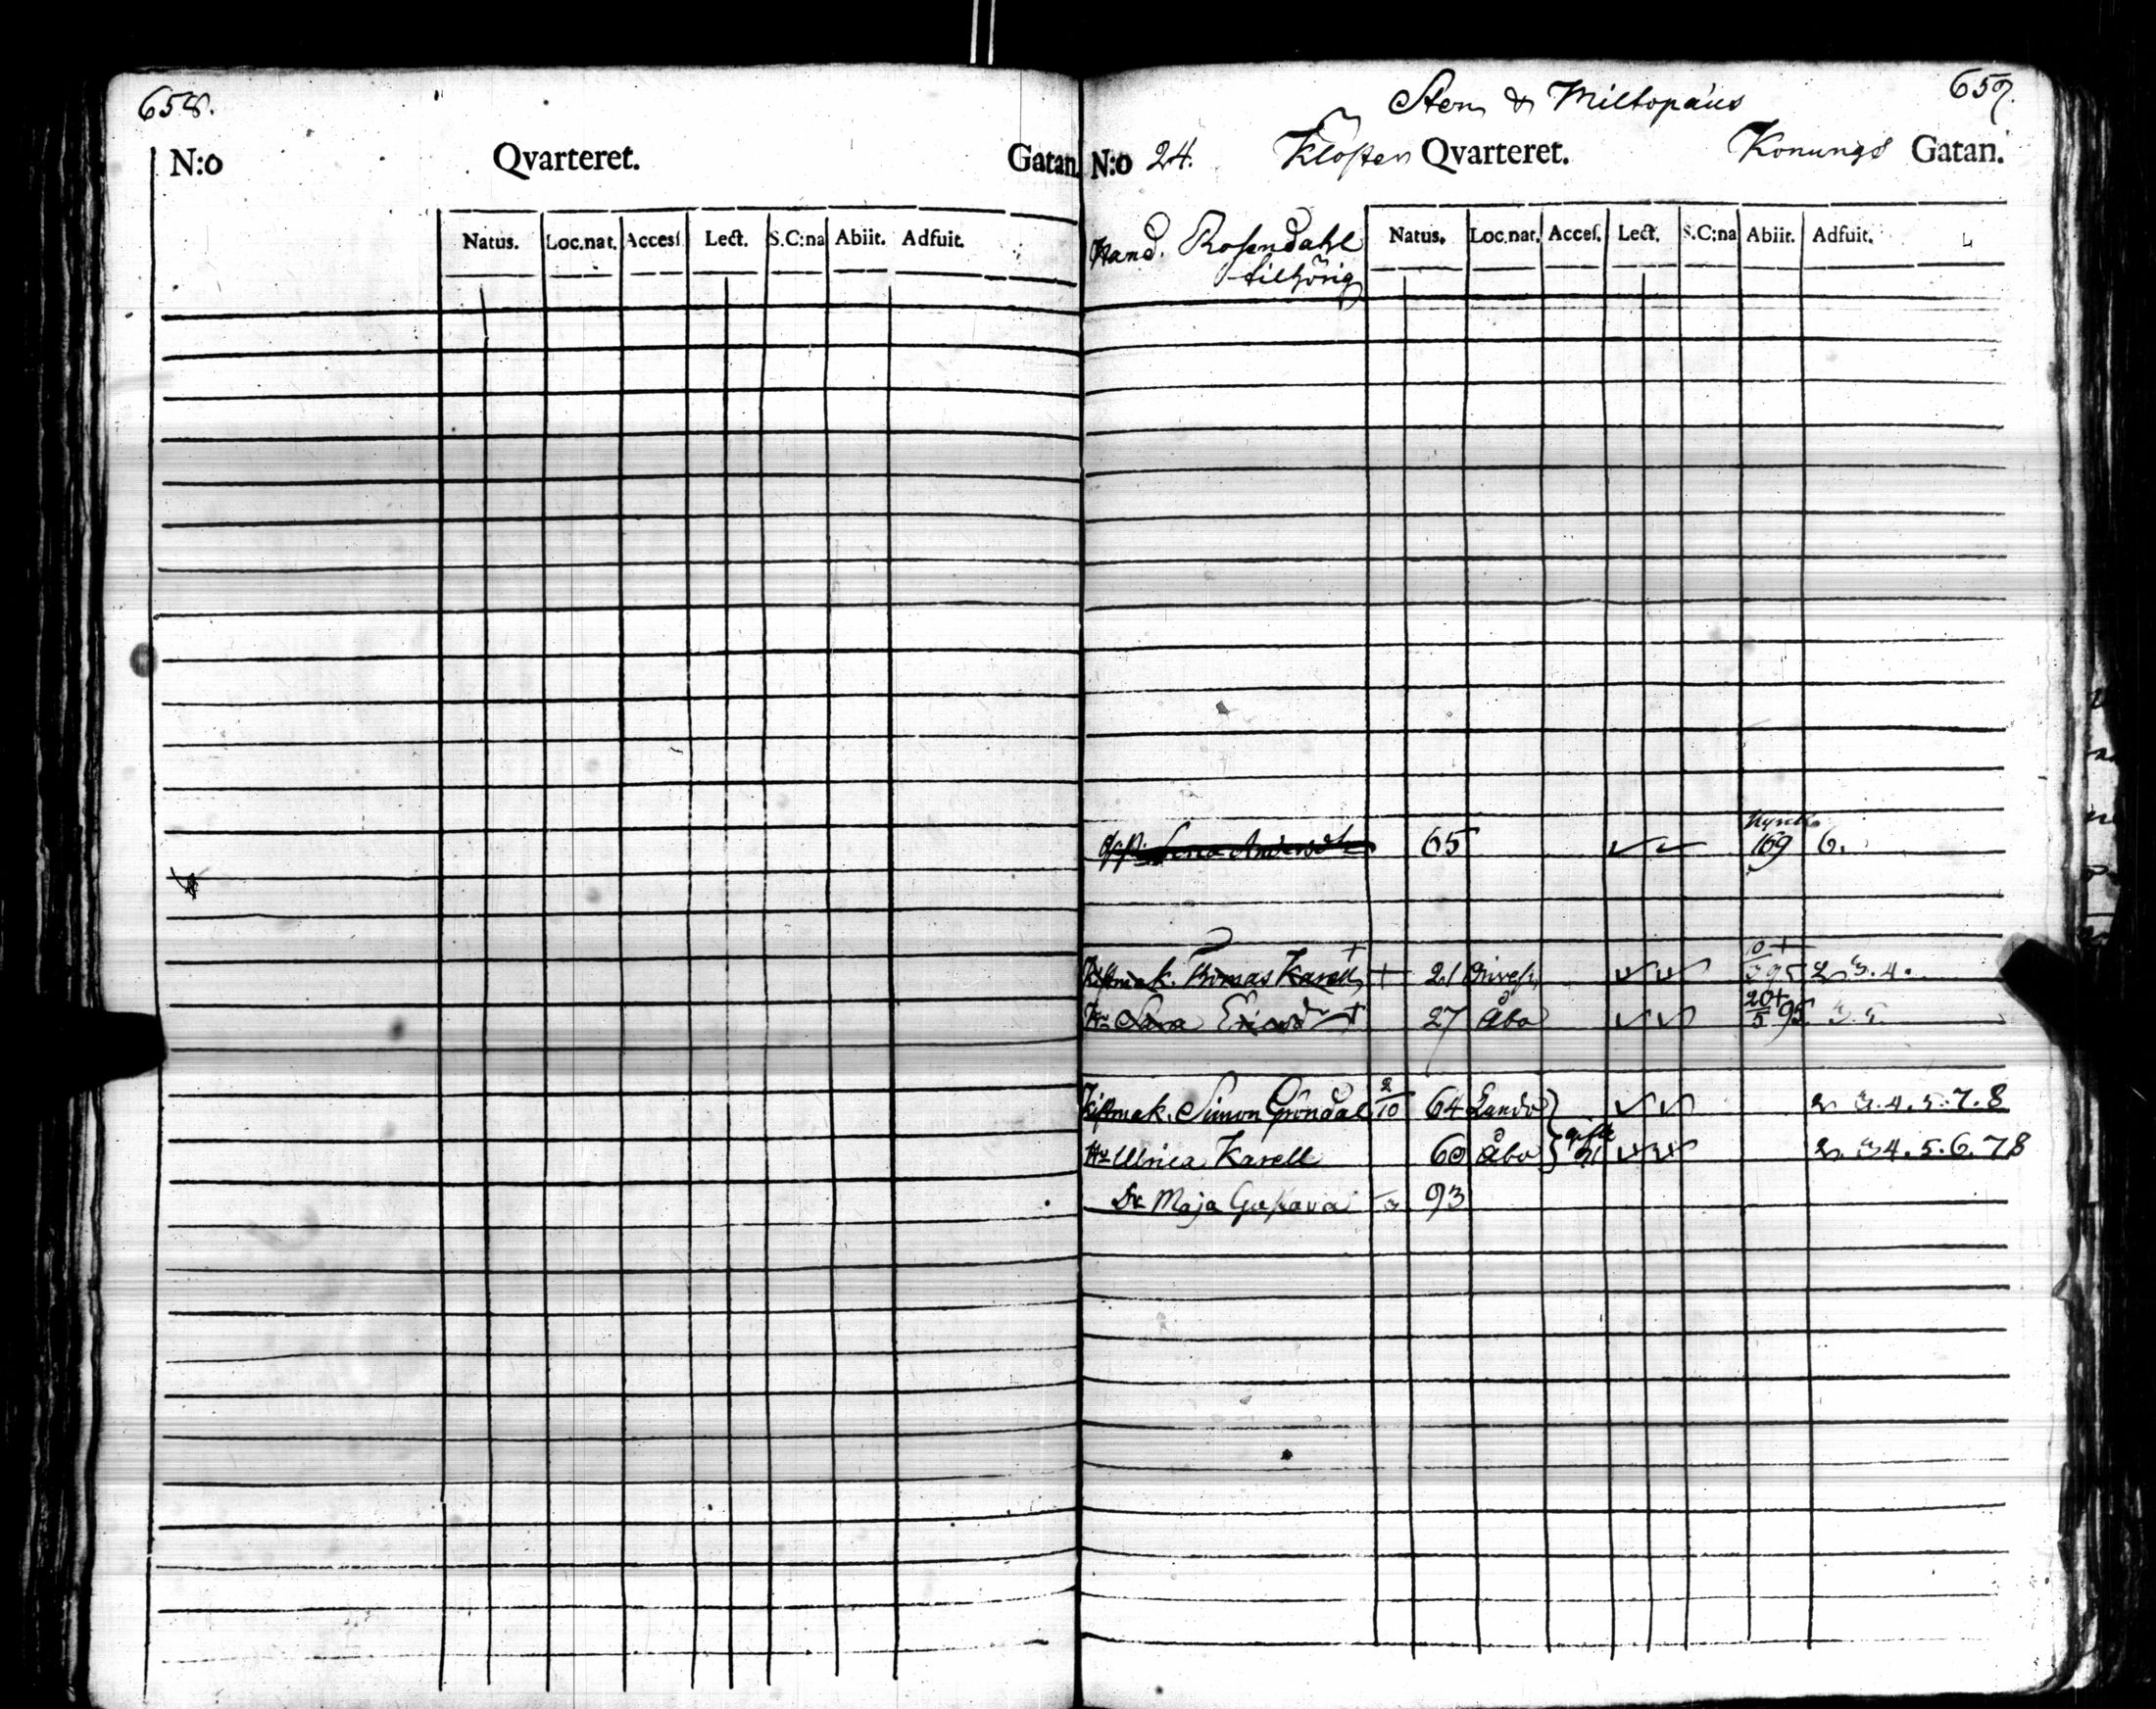 658.
N:o Qvarteret. Gatan.
Natus. Loc.nat. Access. Lect. S.C:na Abiit. Adfuit.
659.
Sten & Miltopæus
N:o 24. Kloster Qvarteret. Konungs Gatan.
Hand. Rosendahl
tilhörig
Natus. Loc.nat. Acces. Lect. S.C:na Abiit. Adfuit.
65 169 6.
Kistmak. Thomas Karell + 21 10+ 3 95 2. 3. 4.
Hu Sara Ericsdr + 27 Åbo 20+ 5 95
Kistmak. Simon Gröndal 2/10 64 Lundo 2. 3. 4. 5. 7. 8
Hu Ulrica Karell 60 Åbo gifte 91 2. 3 4. 5. 6. 7 8
Dr. Maja Gustava 93